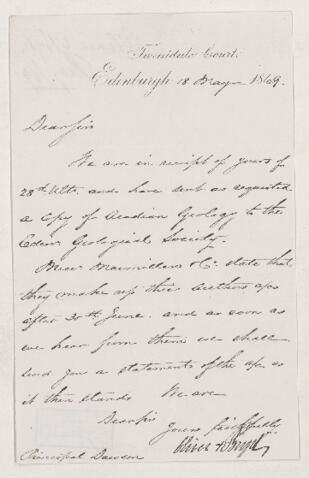 Tweeddale Court.
Edinburgh 18 May 1869.
Dear Sir
We are in receipt of yours of
28th Ulto. and have sent as requested
a copy of Acadian Geology to the
Edinr Geological Society.
Messrs Macmillan & Co. state that
they make up their authors a/cs
after 30th June. and as soon as
we hear from them we shall
send you a statement of the a/c as
it then stands. We are
Dear Sir
Yours faithfully
Oliver & Boyd
Principal Dawson